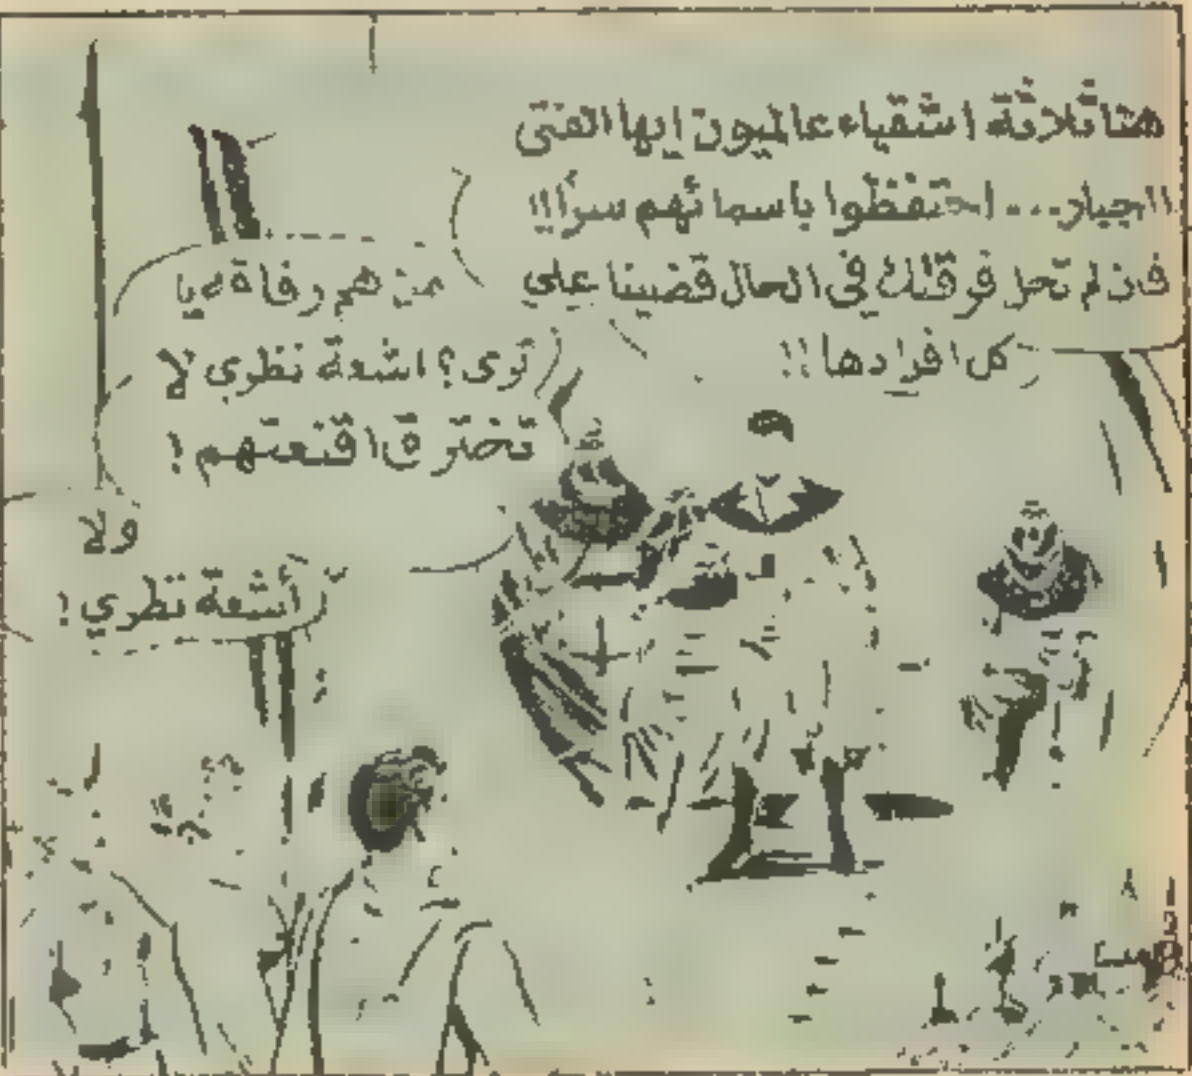 هنا ثلاثة اشقياء عالميون ايها الفتى
الجبار... احتفظوا باسمائهم سراً!!
فان لم تحل فرقتك في الحال قضينا على
كل افرادها!!
من هم رفاقه يا
ترى؟ اشعة نظري لا
تخترق اقنعتهم!
ولا
أشعة نظري!